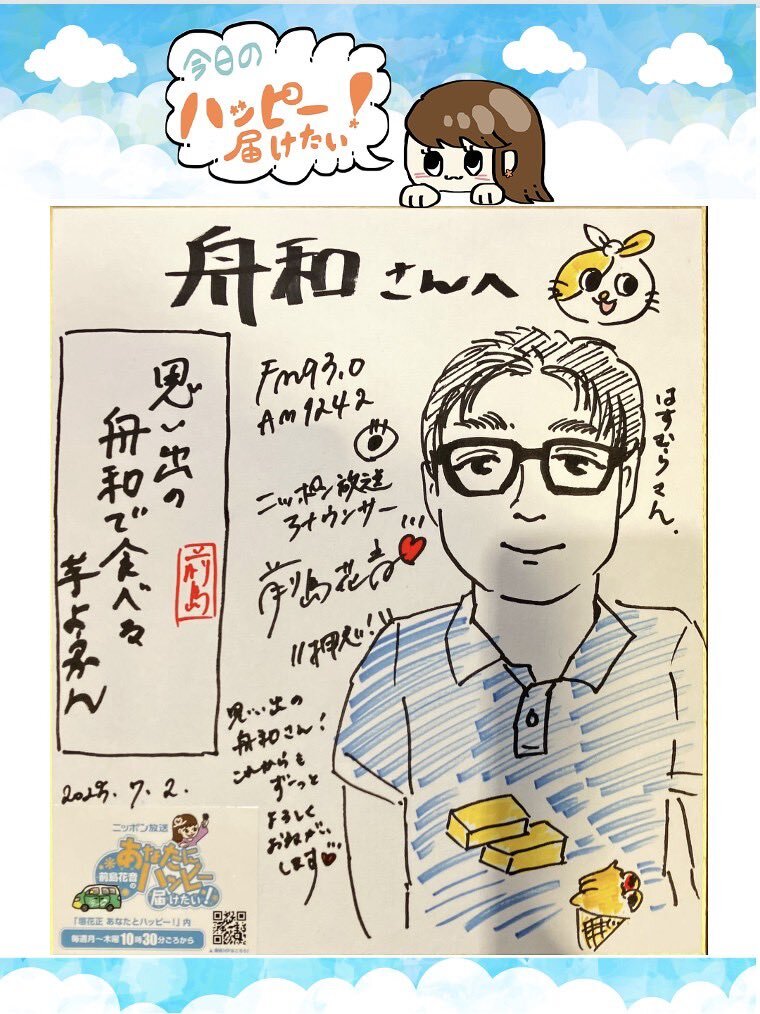 今日の
ハッピー!
届けたい
舟和さんへ
思い出の
舟和で食べる
芋ようかん
前島
FM93.0
AM1242
ニッポン放送
アナウンサー
前島花音
押忍!
はすむらさん.
思い出の
舟和さん!
これからも
ずーっと
よろしく
おねがい
します
2025.7.2.
ニッポン放送
前島花音の
あなたに
ハッピー
届けたい!
「垣花正 あなたとハッピー!」内
毎週月〜木曜10時30分ごろから